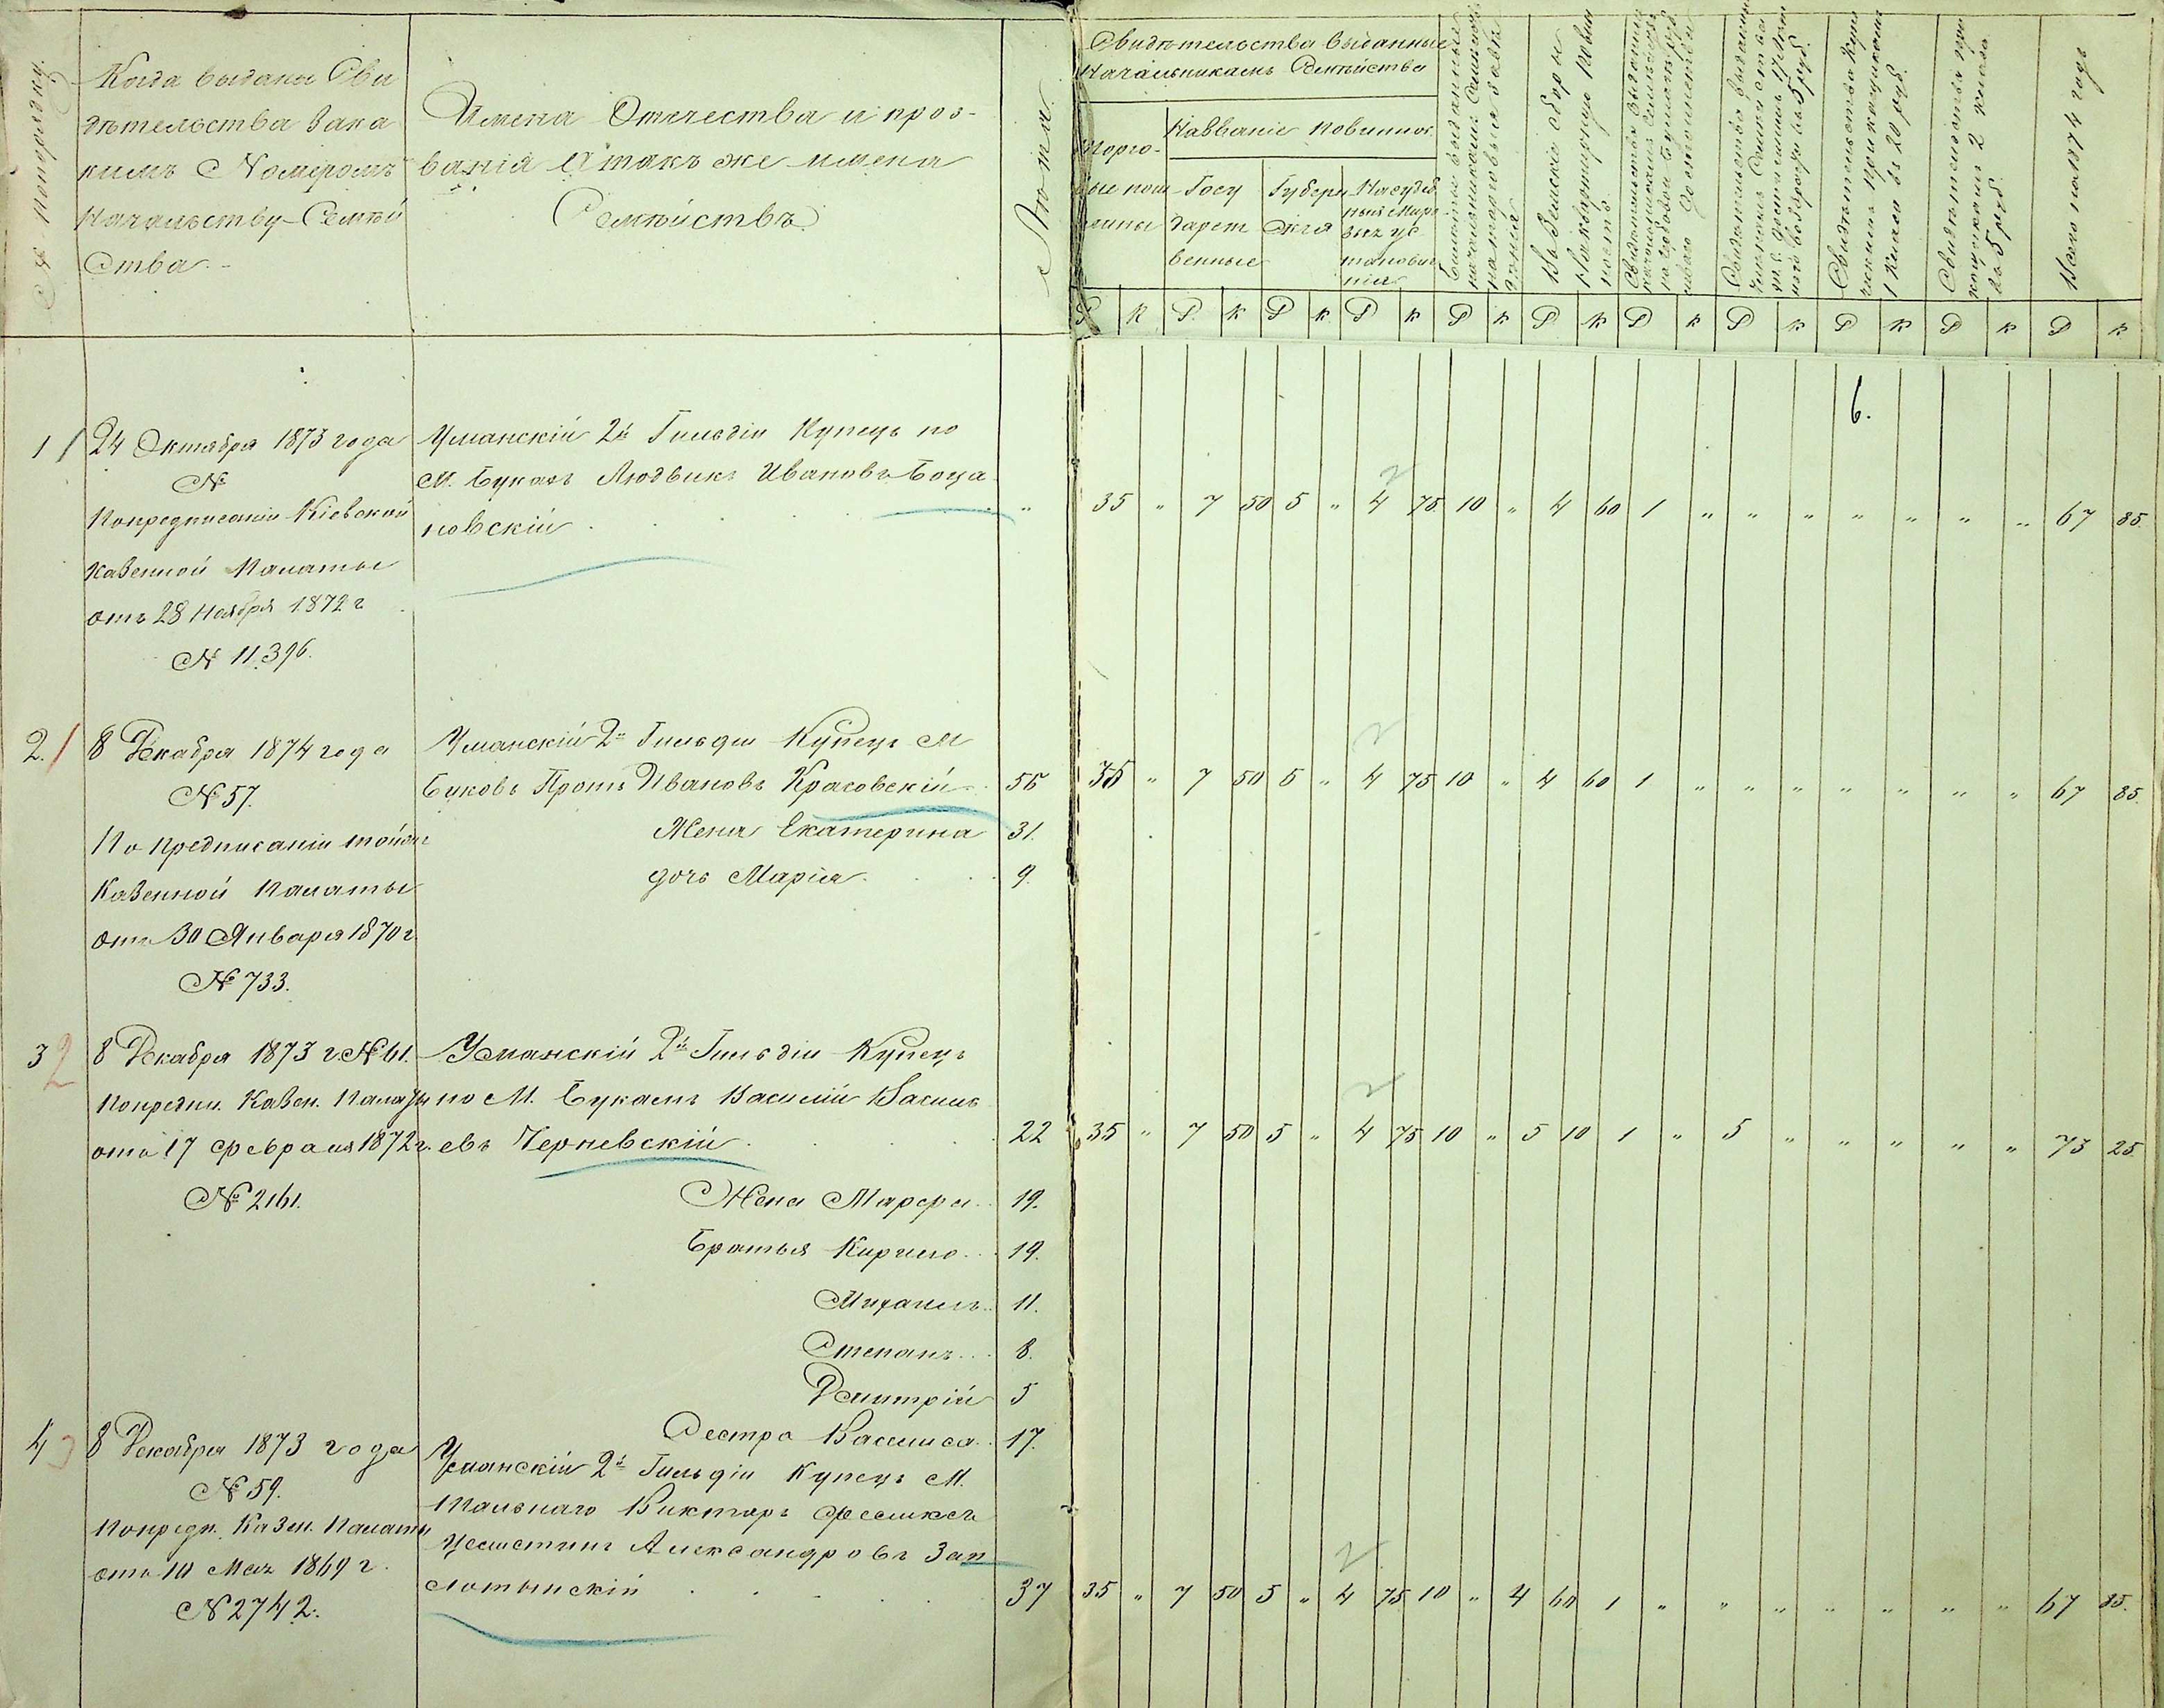 № попорядку.
Когда выданы Сви
дѣтельства зака
кимъ Номеромъ
Начальству Семѣй
Ства.
Имена Отчества и проз-
ванія а такъ же имена
Семѣйствъ
Лѣта
Свидѣтельства выданные
Начальникамъ Семѣйства
Торго-
выя пош
лины
Названіе повиннос.
Госу
дарст
венные
Губерн
скія
На судеб
ныя Миро
выя ус
тановле
нія
Всего на 1874 годъ
Р К Р К Р К Р К Р К Р К Р К Р К Р К Р К Р К
6.
1 24 Октября 1873 года
№
Попредписанію Кіевской
Казенной Палаты
отъ 28 Ноября 1872 г
№ 11.396.
Уманскій 2й Гильдіи Купецъ по
М. Букамъ Людвикъ Ивановъ Боца
новскій
" 35 " 7 50 5 " 4 75 10 " 4 60 1 " " " " " " " 67 85.
2. 8 Декабря 1874 года
№ 57.
По предписанію тойже
Казенной Палаты
отъ 30 Января 1870 г.
№ 733.
Уманскій 2й Гильдіи Купецъ М
Буковъ Протъ Ивановъ Красовскій 55 35 " 7 50 5 " 4 75 10 " 4 60 1 " " " " " " " 67 85.
Жена Екатерина 31.
дочь Марія 9.
3 2 8 Декабря 1873 г. № 61.
Попредпи. Казен. Палаты
отъ 17 февраля 1872 г.
№ 2161.
Уманскій 2й Гильдіи Купецъ
по М. Букамъ Василій Василь
евъ Черневскій 22 35 " 7 50 5 " 4 75 10 " 5 10 1 " 5 " " " " " 73 25.
Жена Марфа 19.
Братья Кирило 19.
Михаилъ 11.
Степанъ 8.
Дмитрій 5
Сестра Василиса 17.
4 3 8 Декабря 1873 года
№ 59.
Попредп. Казен. Палаты
отъ 10 Мая 1869 г.
№ 2742.
Уманскій 2й Гильдіи Купецъ М.
Тальнаго Викторъ Феликсъ
Целестинъ Александровъ Зап
слотынскій 37 35 " 7 50 5 " 4 75 10 " 4 60 1 " " " " " " " 67 85.